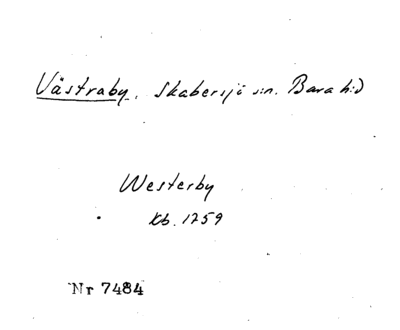 Västraby, Skabersjö sn. Bara hd
Westerby
Kb. 1259
Nr 7484